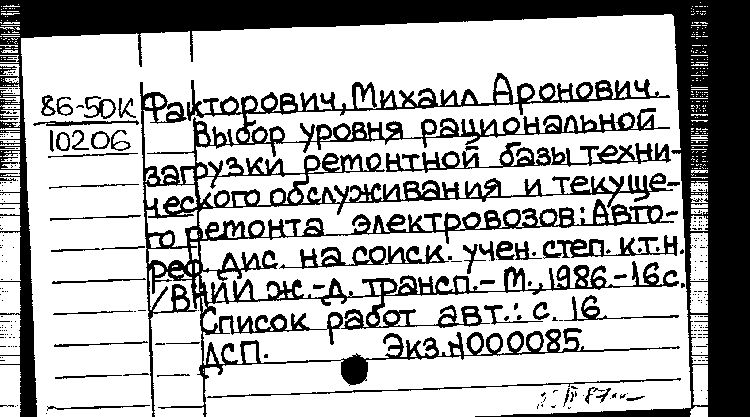 86-50К Факторович, Михаил Аронович.
10206 Выбор уровня рациональной
загрузки ремонтной базы техни-
ческого обслуживания и текуще-
го ремонта электровозов: Авто-
реф. дис. на соиск. учен. степ. к.т.н.
/ВНИИ ж.-д. трансп.- М., 1986.-16с.
Список работ авт.: с. 16.
ДСП. Экз.N000085.